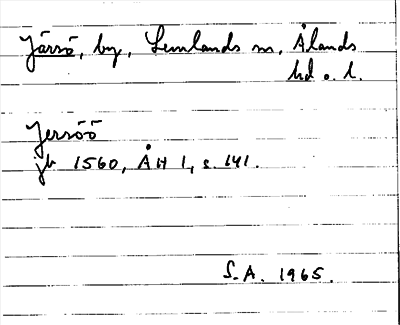 Järsö, by, Lemlands sn, Ålands
hd o. l.
Jersöö
jb 1560, ÅH 1, s. 141.
S.A. 1965.